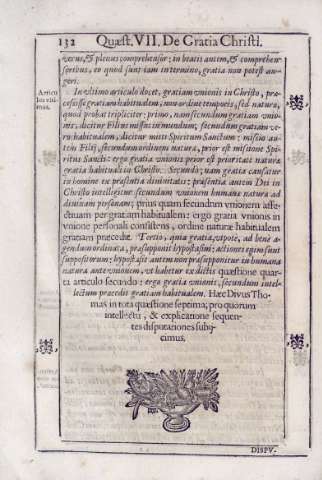 132 Quæst. VII. De Gratia Christi.
verus, & plenus comprehensor: in beatis autem, & comprehen-
soribus, eo quod sunt iam in termino, gratia non potest au-
geri.
Articu
lus vlti-
mus.
In vltimo articulo docet, gratiam vnionis in Christo, præ-
cessisse gratiam habitualem, non ordine temporis, sed natura,
quod probat tripliciter: primo, nam secundum gratiam vnio-
nis, dicitur Filius missus in mundum, secundum gratiam ve-
ro habitualem, dicitur mitti Spiritum Sanctum: missio au-
tem Filij, secundum ordinem natura, prior est missione Spiri-
tus Sancti: ergo gratia vnionis prior est prioritate natura
gratia habituali in Christo. Secundo; nam gratia causatur
in homine ex præsentia diuinitatis; præsentia autem Dei in
Christo intelligitur secundum vnionem humana natura ad
diuinam personam; prius quam secundum vnionem affe-
ctuum per gratiam habitualem: ergo gratia vnionis in
vnione personali consistens, ordine naturæ habitualem
gratiam præcedit. Tertio, quia gratia, vtpote, ad bene a-
gendum ordinata, præsupponit hypostasim: actiones enim sunt
suppositorum; hypostasis autem non præsupponitur in humana
natura ante vnionem, vt habetur ex dictis quæstione quar-
ta articulo secundo: ergo gratia vnionis, secundum intel-
lectum præcedit gratiam habitualem. Hæc Diuus Tho-
mas in tota quæstione septima; pro quorum
intellectu, & explicatione sequen-
tes disputationes subij-
cimus.
DISPV-